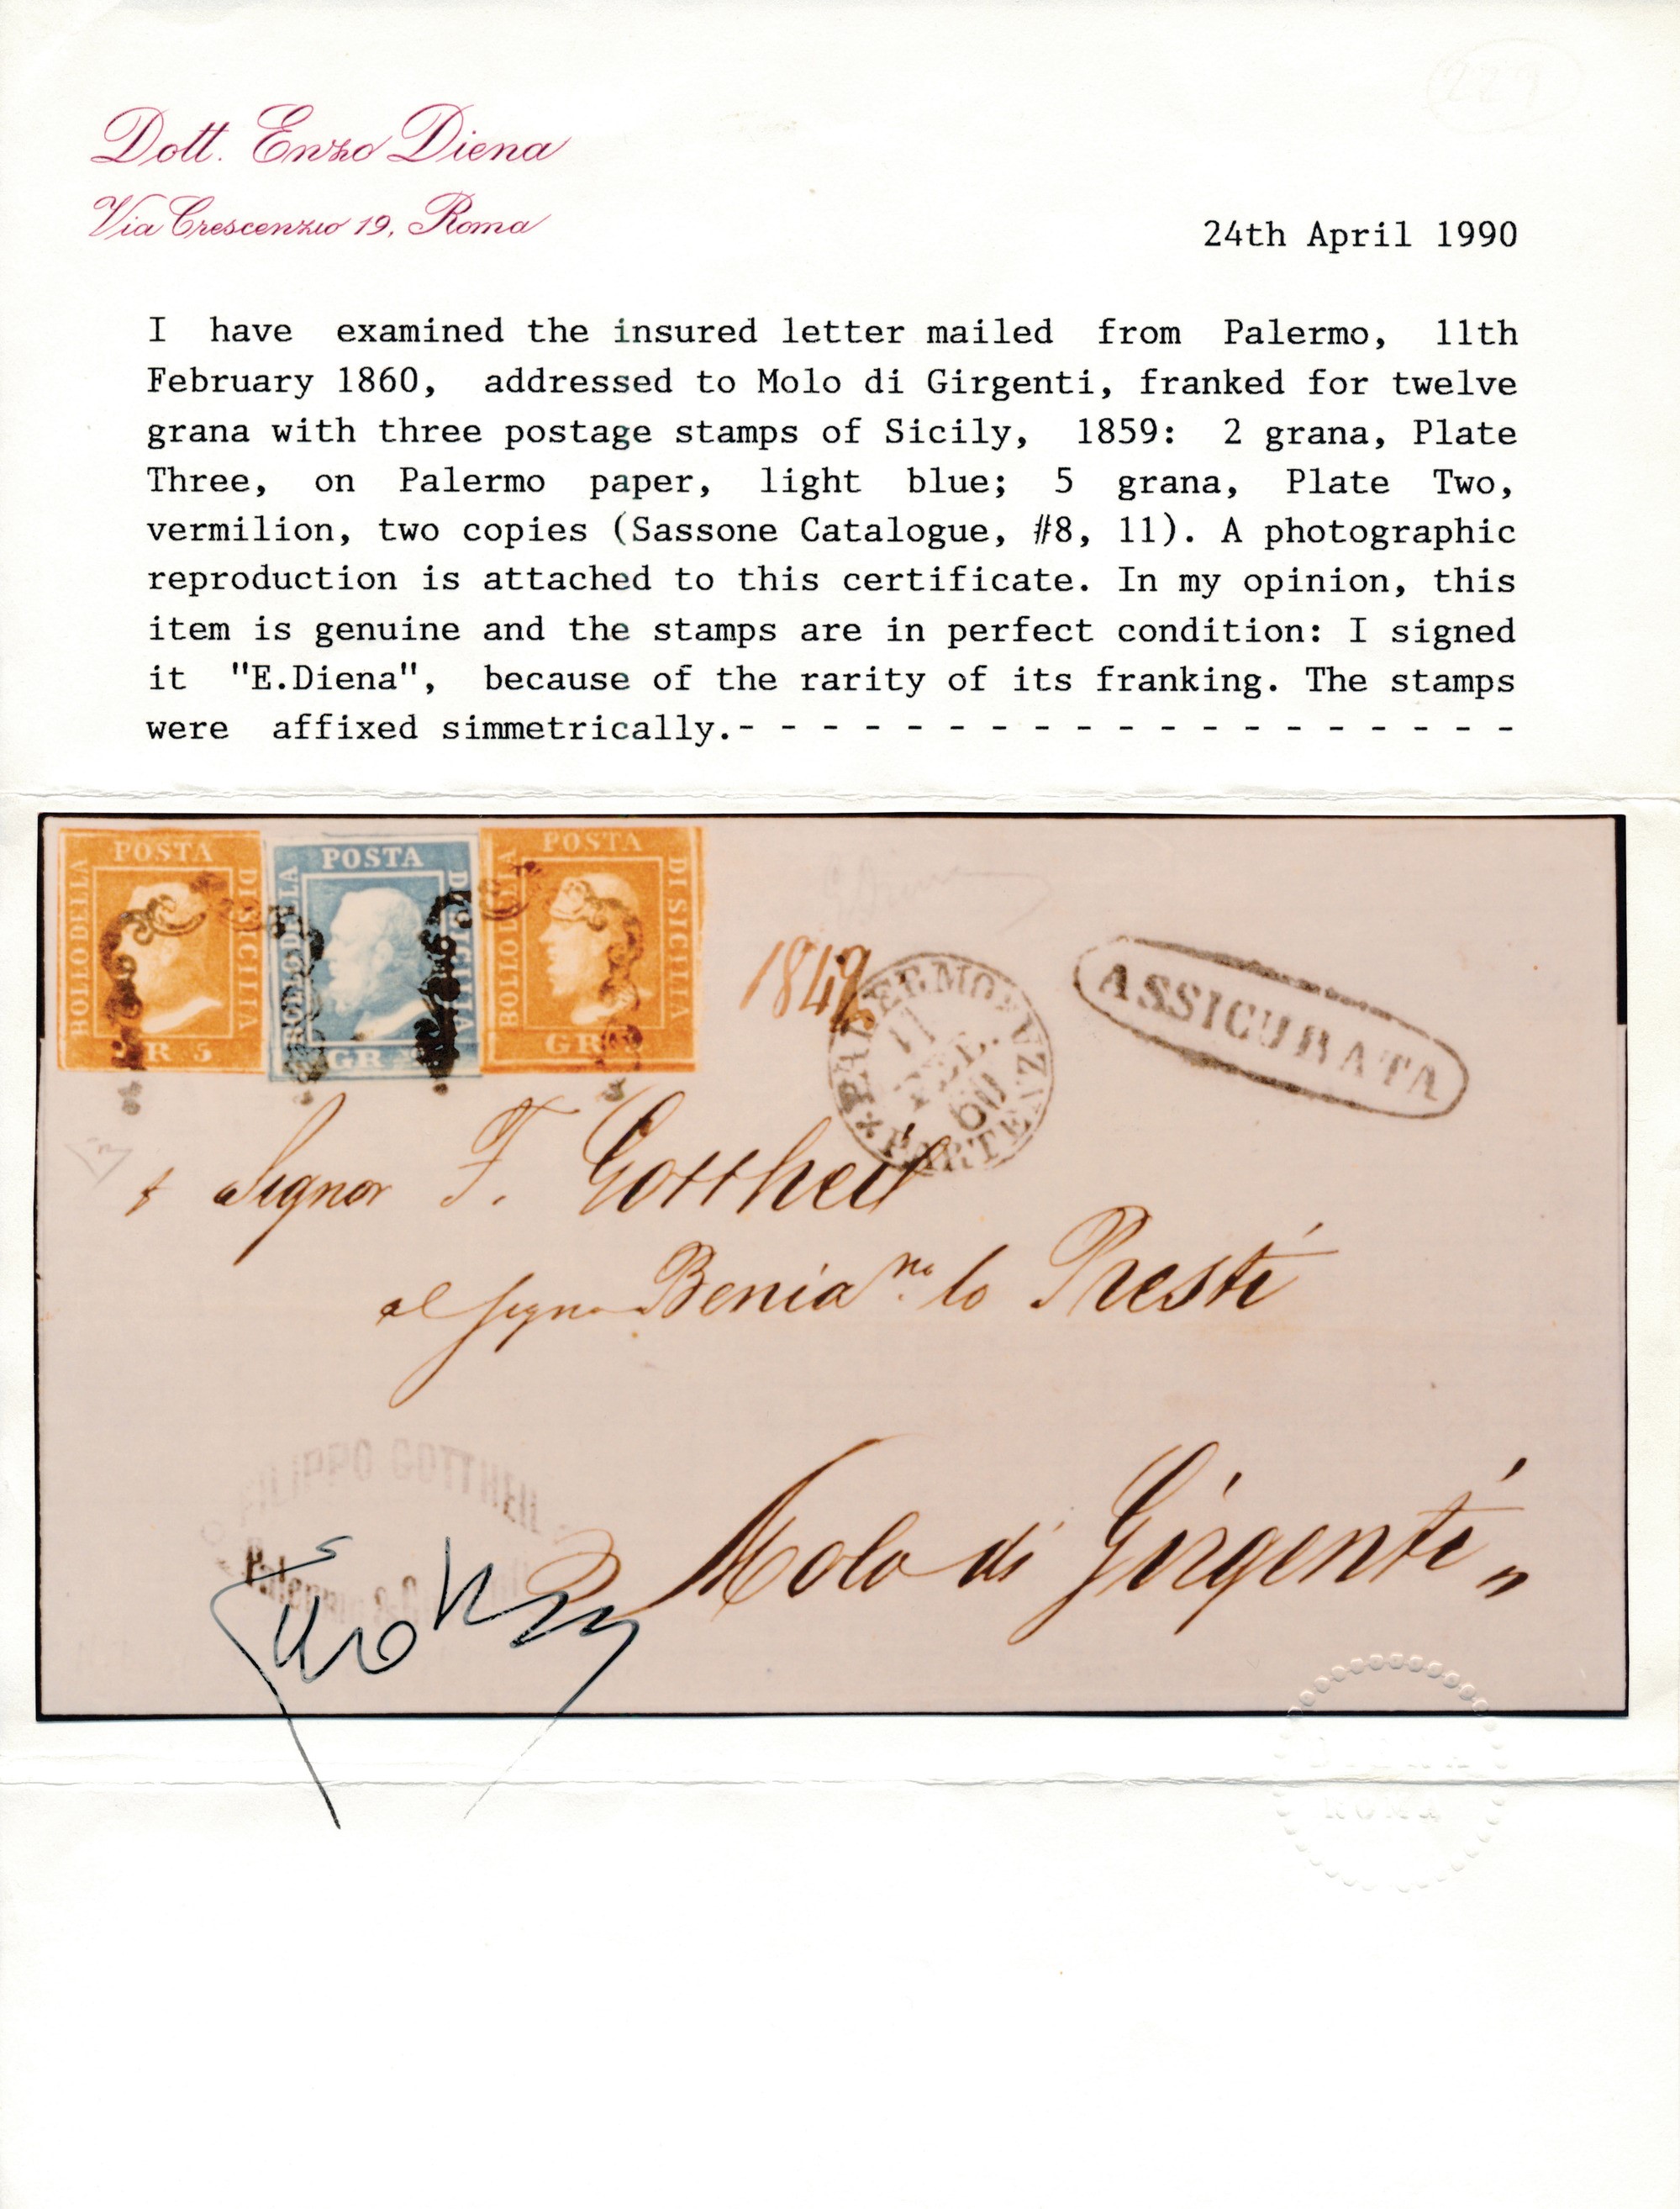 Dott. Enzo Diena
Via Crescenzio 19, Roma
24th April 1990
I have examined the insured letter mailed from Palermo, 11th
February 1860, addressed to Molo di Girgenti, franked for twelve
grana with three postage stamps of Sicily, 1859: 2 grana, Plate
Three, on Palermo paper, light blue; 5 grana, Plate Two,
vermilion, two copies (Sassone Catalogue, #8, 11). A photographic
reproduction is attached to this certificate. In my opinion, this
item is genuine and the stamps are in perfect condition: I signed
it "E.Diena", because of the rarity of its franking. The stamps
were affixed simmetrically.- - - - - - - - - - - - - - - - - - -
POSTA
BOLLO DELLA
DI SICILIA
GR 5
POSTA
BOLLO DELLA
DI SICILIA
GR
POSTA
BOLLO DELLA
DI SICILIA
GR 5
E Diena
1849
PALERMO
PARTENZA
11
FEB.
60
ASSICURATA
Signor F. Gottheil
al Signor Beniamo lo Presti
Molo di Girgenti
FILIPPO GOTTHEIL
Palermo
ROMA